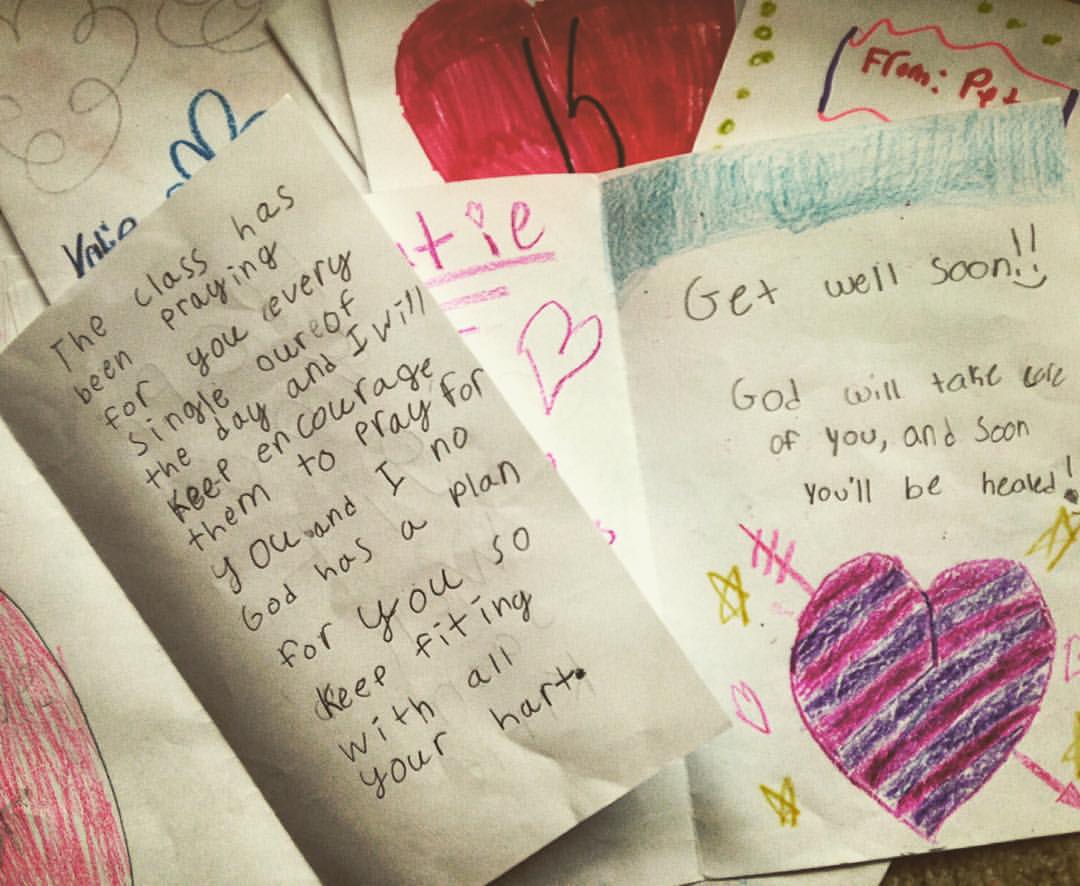 The class has
been praying
for you every
single oureof
the day and I will
keep encourage
them to pray for
you and I no
God has a plan
for you so
keep fiting
with all
your hart.
Katie
atie
From:
Get well soon!!
God will take care
of you, and soon
you'll be healed!